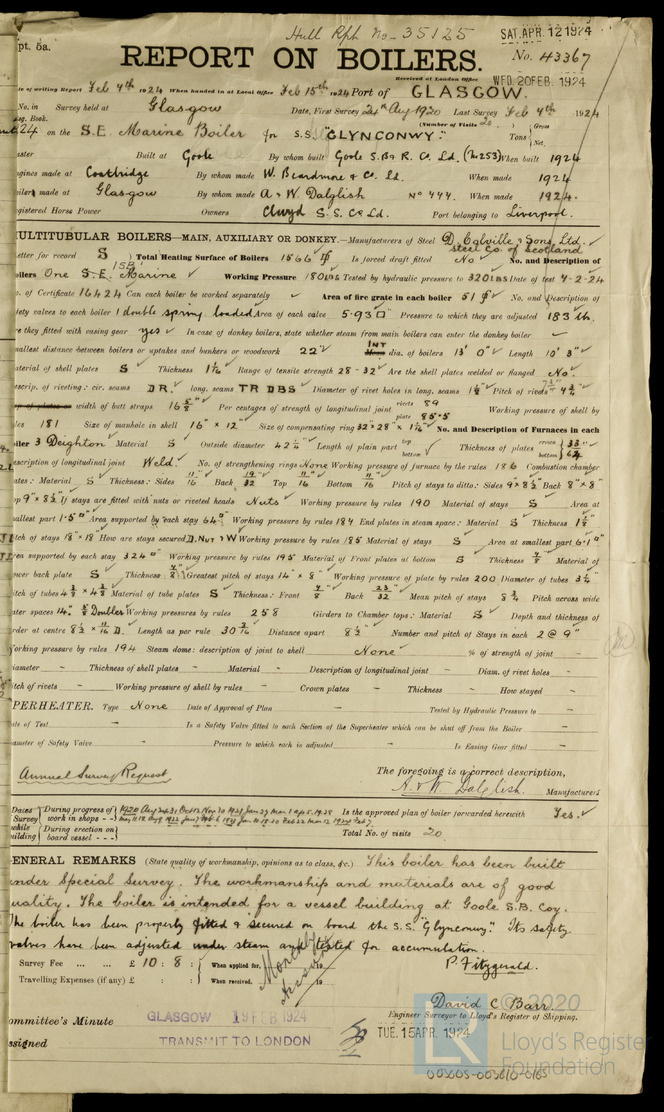 Hull Rpt No 35125
SAT. APR. 12 1924
pt. 5a.
REPORT ON BOILERS.
No. 43367
Received at London Office WED. 20 FEB. 1924
te of writing Report Feb 4th 1924 When handed in at Local Office Feb 15th 1924 Port of GLASGOW.
No. in Survey held at Glasgow Date, First Survey 24th Aug 1920 Last Survey Feb 4th 1924
eg. Book. (Number of Visits 20)
24 on the S.E. Marine Boiler for S.S. "GLYNCONWY." Tons Gross Net
aster Built at Goole By whom built Goole S.B. & R. Co. Ld. (No 253) When built 1924
ngines made at Coatbridge By whom made W. Beardmore & Co. Ld. When made 1924
oilers made at Glasgow By whom made A & W Dalglish No 444. When made 1924.
egistered Horse Power Owners Clwyd S.S. Co Ld. Port belonging to Liverpool.
MULTITUBULAR BOILERS—MAIN, AUXILIARY OR DONKEY.—Manufacturers of Steel D. Colville & Sons Ltd.
Steel Co of Scotland
etter for record S Total Heating Surface of Boilers 1566 Is forced draft fitted No No. and Description of
oilers One S.E. Marine Working Pressure 180 lbs Tested by hydraulic pressure to 320 lbs Date of test 4-2-24
o. of Certificate 16424 Can each boiler be worked separately Area of fire grate in each boiler 51 No. and Description of
fety valves to each boiler 1 double spring loaded Area of each valve 5.93 Pressure to which they are adjusted 183 lb.
re they fitted with easing gear yes In case of donkey boilers, state whether steam from main boilers can enter the donkey boiler
mallest distance between boilers or uptakes and bunkers or woodwork 22" INT dia. of boilers 13' 0" Length 10' 3"
aterial of shell plates S Thickness 1 1/16 Range of tensile strength 28-32 Are the shell plates welded or flanged No.
escrip. of riveting: cir. seams DR. long. seams TR DBS Diameter of rivet holes in long. seams 1 1/8 Pitch of rivets
width of butt straps 16 5/8" Per centages of strength of longitudinal joint rivets 89 plate 85.5 Working pressure of shell by
les 181 Size of manhole in shell 16" x 12" Size of compensating ring 32" x 28" x 1 1/16" No. and Description of Furnaces in each
oiler 3 Deighton Material S Outside diameter 42 1/4" Length of plain part top bottom Thickness of plates crown bottom 33/64
escription of longitudinal joint Weld. No. of strengthening rings None Working pressure of furnace by the rules 186 Combustion chamber
ates: Material S Thickness: Sides 11/16 Back 19/32 Top 11/16 Bottom 11/16 Pitch of stays to ditto: Sides 9" x 8 1/2 Back 8" x 8"
op 9" x 8 1/2 If stays are fitted with nuts or riveted heads Nuts Working pressure by rules 190 Material of stays S Area at
mallest part 1.50 Area supported by each stay 64 Working pressure by rules 184 End plates in steam space: Material S Thickness
itch of stays 18" x 18" How are stays secured D. Nut & W Working pressure by rules 185 Material of stays S Area at smallest part 6.1
rea supported by each stay 324 Working pressure by rules 195 Material of Front plates at bottom S Thickness 7/8 Material of
ower back plate S Thickness 7/8 Greatest pitch of stays 14" x 8" Working pressure of plate by rules 200 Diameter of tubes 3 1/4"
itch of tubes 4 1/2 x 4 3/8 Material of tube plates S Thickness: Front 7/8 Back 23/32 Mean pitch of stays 8 3/4 Pitch across wide
ater spaces 14" Doubler Working pressures by rules 258 Girders to Chamber tops: Material S Depth and thickness of
irder at centre 8 1/2 x 11/16 D. Length as per rule 30 3/16 Distance apart 8 1/2" Number and pitch of Stays in each 2 @ 9"
orking pressure by rules 194 Steam dome: description of joint to shell None % of strength of joint —
iameter — Thickness of shell plates — Material — Description of longitudinal joint — Diam. of rivet holes —
itch of rivets — Working pressure of shell by rules — Crown plates — Thickness — How stayed —
PERHEATER. Type None Date of Approval of Plan — Tested by Hydraulic Pressure to —
ate of Test — Is a Safety Valve fitted to each Section of the Superheater which can be shut off from the Boiler —
iameter of Safety Valve — Pressure to which each is adjusted — Is Easing Gear fitted —
Annual Survey Request
The foregoing is a correct description,
A. & W Dalglish. Manufacturers
Dates Survey while building
During progress of work in shops - -
During erection on board vessel - - -
Is the approved plan of boiler forwarded herewith Yes.
Total No. of visits 20.
GENERAL REMARKS (State quality of workmanship, opinions as to class, &c.) This boiler has been built
under Special Survey. The workmanship and materials are of good
quality. The boiler is intended for a vessel building at Goole S.B. Coy.
The boiler has been properly fitted & secured on board the S.S. "Glynconwy". Its safety
valves have been adjusted under steam and tested for accumulation.
P. Fitzgerald.
Survey Fee ... ... £ 10 : 8 : When applied for, 19
Travelling Expenses (if any) £ : : When received, 19
David C Barr
Engineer Surveyor to Lloyd's Register of Shipping.
ommittee's Minute GLASGOW 19 FEB 1924 TUE. 15 APR. 1924
ssigned TRANSMIT TO LONDON
© 2020
Lloyd's Register
Foundation
003605-003610-0165